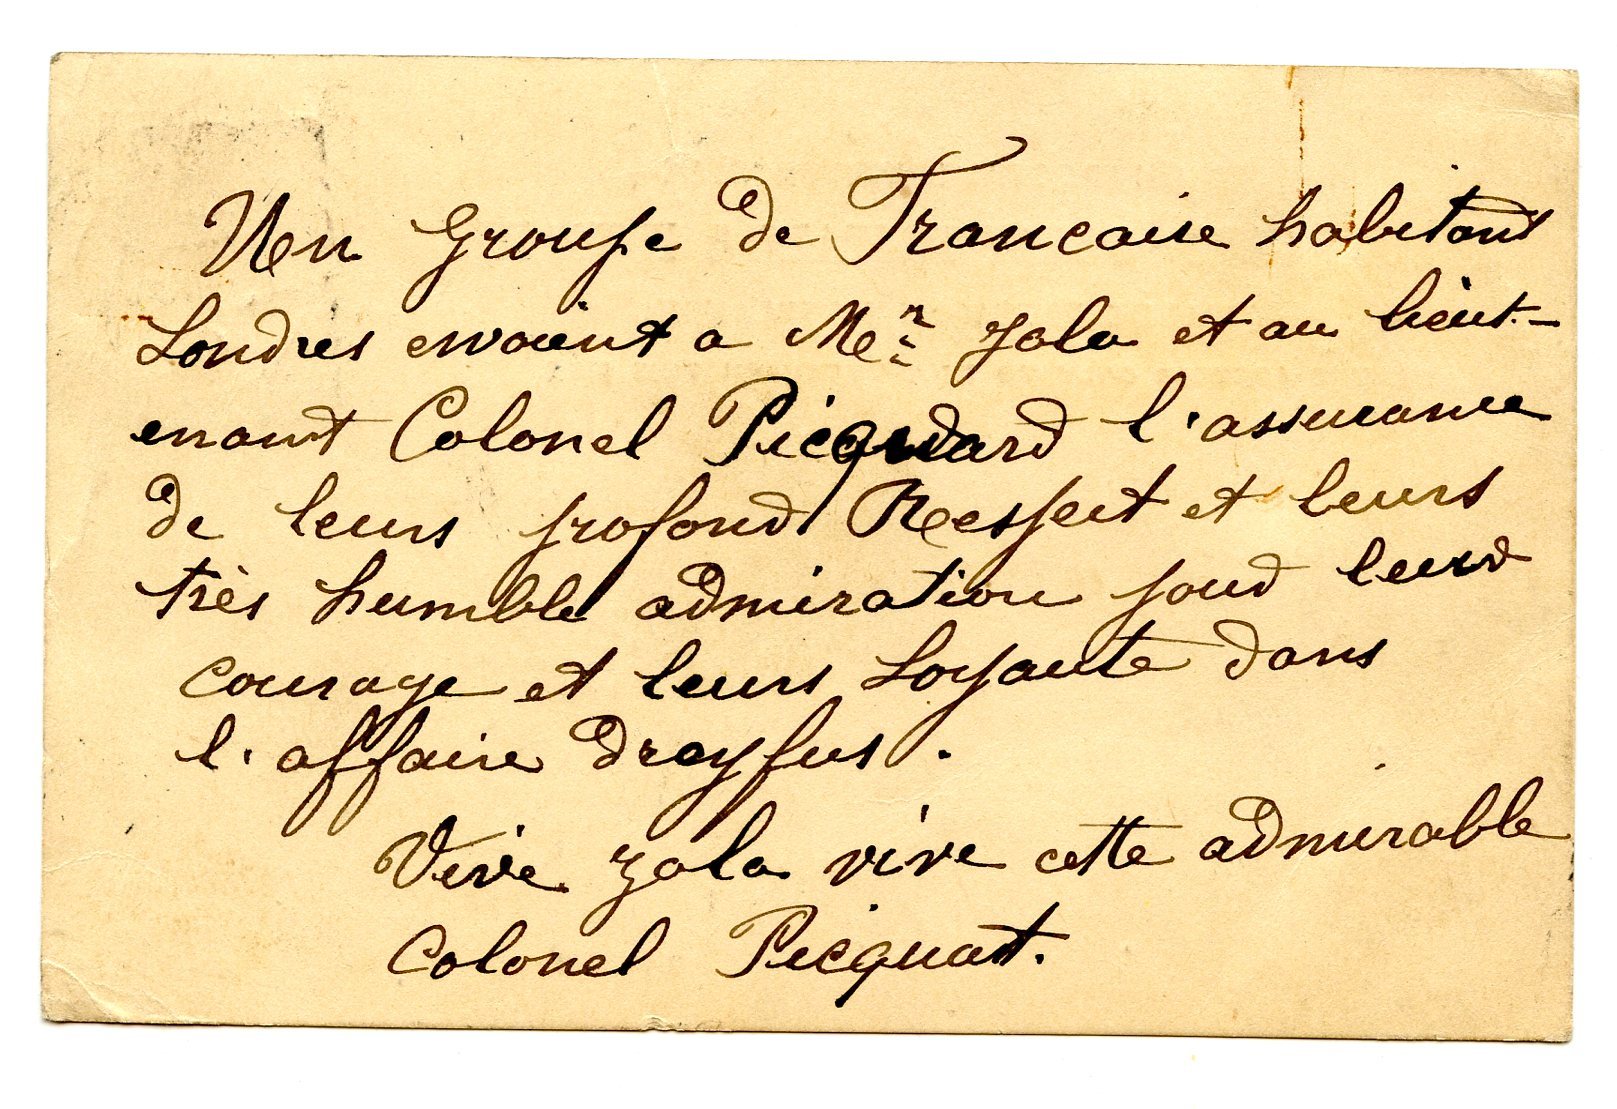 Un Groupe de Francaise habitant
Londres envoient a Mr Zola et au lieut-
enant Colonel Picquard l'assurance
de leurs profond Respect et leurs
très humble admiration pour leurs
courage et leurs Loyauté dans
l'affaire Dreyfus.
Vive Zola vive cette admirable
Colonel Picquat.